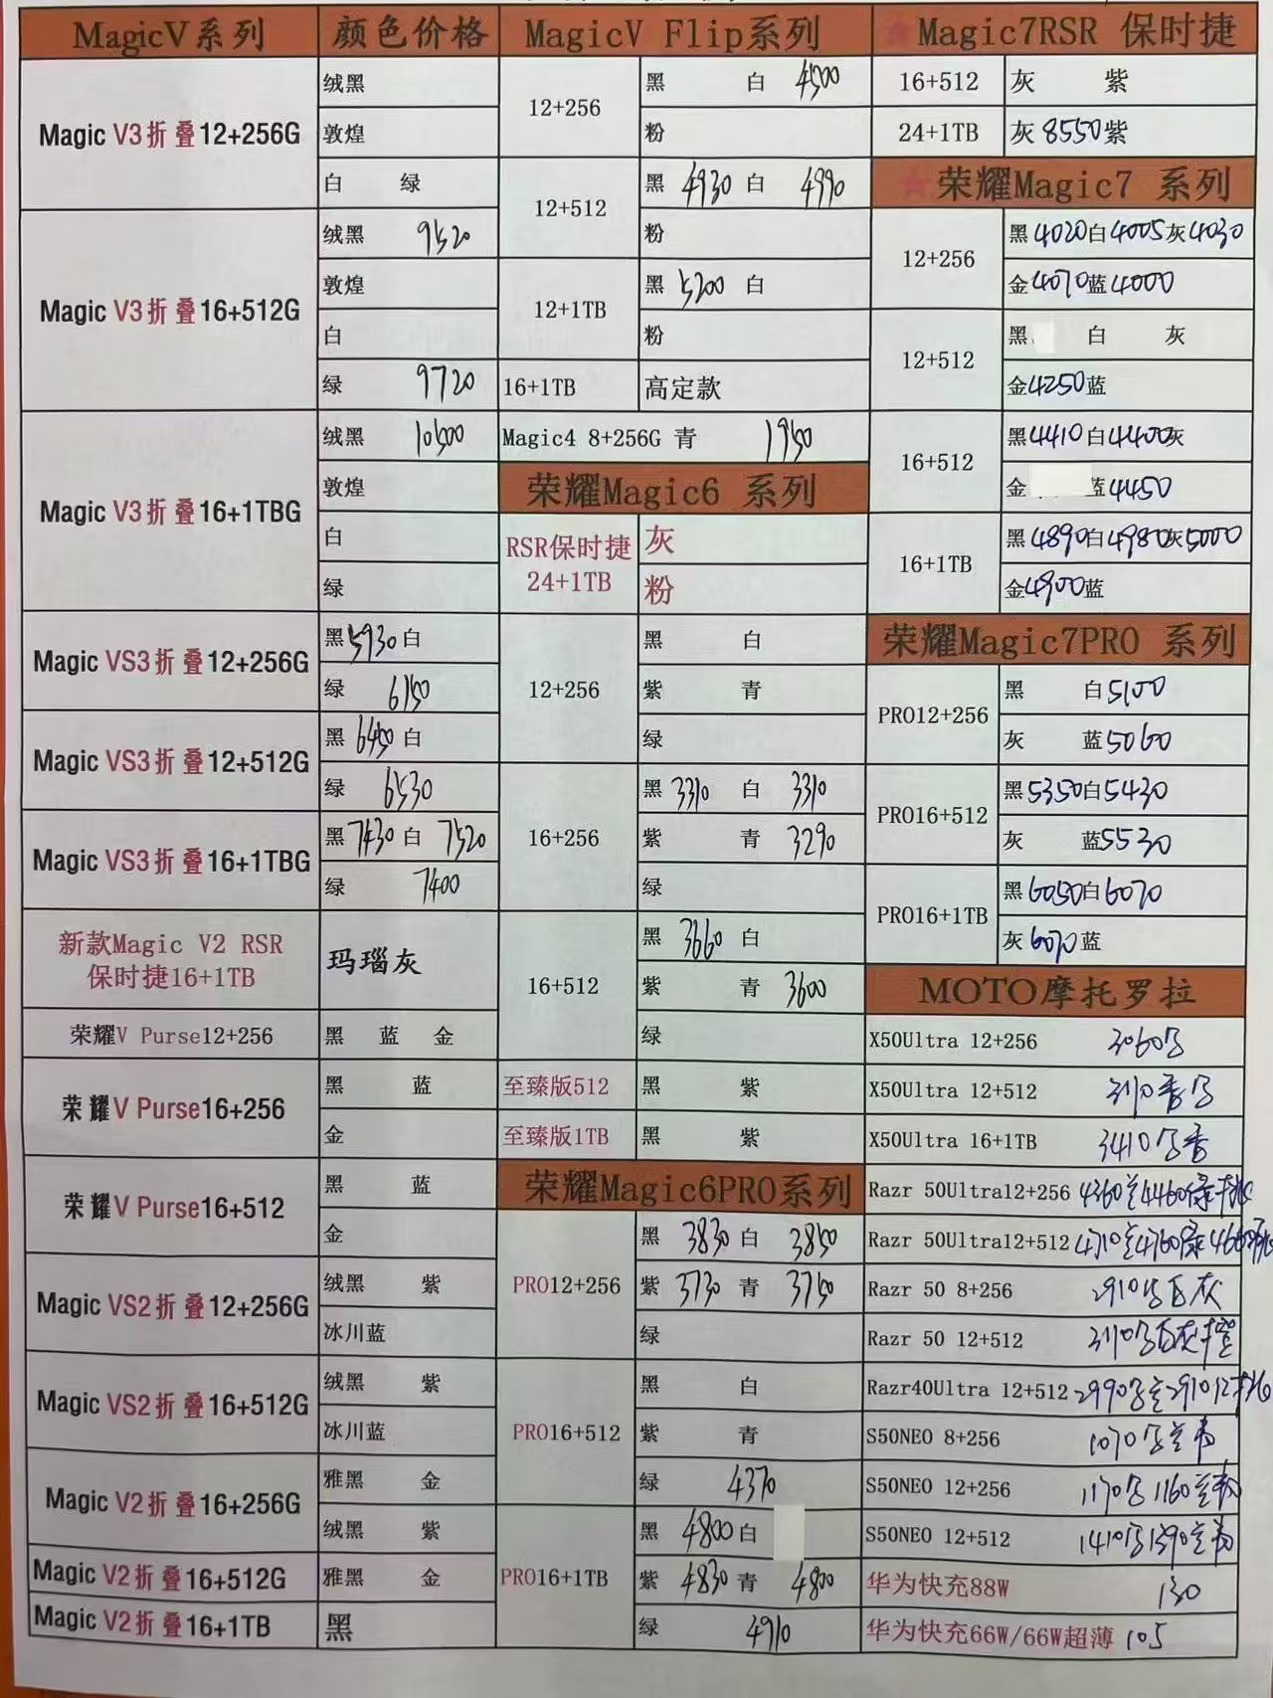 MagicV系列
颜色价格
Magic V3折叠12+256G
绒黑
敦煌
白 绿
Magic V3折叠16+512G
绒黑 9520
敦煌
白
绿 9720
Magic V3折叠16+1TBG
绒黑 10500
敦煌
白
绿
Magic VS3折叠12+256G
黑5930白
绿 6150
Magic VS3折叠12+512G
黑 6450 白
绿 6530
Magic VS3折叠16+1TBG
黑7430白 7520
绿 7400
新款Magic V2 RSR
保时捷16+1TB
玛瑙灰
荣耀V Purse12+256
黑 蓝 金
荣耀V Purse16+256
黑 蓝
金
荣耀V Purse16+512
黑 蓝
金
Magic VS2折叠12+256G
绒黑 紫
冰川蓝
Magic VS2折叠16+512G
绒黑 紫
冰川蓝
Magic V2折叠16+256G
雅黑 金
绒黑 紫
Magic V2折叠16+512G
雅黑 金
Magic V2折叠16+1TB
黑
MagicV Flip系列
12+256
黑 白 4500
粉
12+512
黑 4930 白 4990
粉
12+1TB
黑 5200 白
粉
16+1TB
高定款
Magic4 8+256G 青 1950
荣耀Magic6 系列
RSR保时捷
24+1TB
灰
粉
12+256
黑 白
紫 青
绿
16+256
黑 3310 白 3310
紫 青 3290
绿
16+512
黑 3660 白
紫 青 3600
绿
至臻版512
黑 紫
至臻版1TB
黑 紫
荣耀Magic6PRO系列
PRO12+256
黑 3830 白 3850
紫 3730 青 3750
绿
PRO16+512
黑 白
紫 青
绿 4370
PRO16+1TB
黑 4800白
紫 4830 青 4800
绿 4910
Magic7RSR 保时捷
16+512
灰 紫
24+1TB
灰 8550紫
荣耀Magic7 系列
12+256
黑4020白4005灰4030
金4070蓝4000
12+512
黑 白 灰
金4250蓝
16+512
黑4410白4400灰
金 蓝4450
16+1TB
黑4890白4980灰5000
金4900蓝
荣耀Magic7PRO 系列
PRO12+256
黑 白5100
灰 蓝5060
PRO16+512
黑5350白5430
灰 蓝5530
PRO16+1TB
黑6050白6070
灰6070蓝
MOTO摩托罗拉
X50Ultra 12+256 3060
X50Ultra 12+512 3110
X50Ultra 16+1TB 3410
Razr 50Ultra12+256 4360 4460
Razr 50Ultra12+512 4710 4760
Razr 50 8+256 2910 白灰
Razr 50 12+512 3110 白灰
Razr40Ultra 12+512 2990 2910
S50NEO 8+256 1070
S50NEO 12+256 1170 1160
S50NEO 12+512 1410 1390
华为快充88W 130
华为快充66W/66W超薄 105